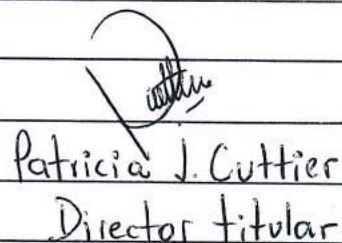 Patricia J. Cuttier
Director titular